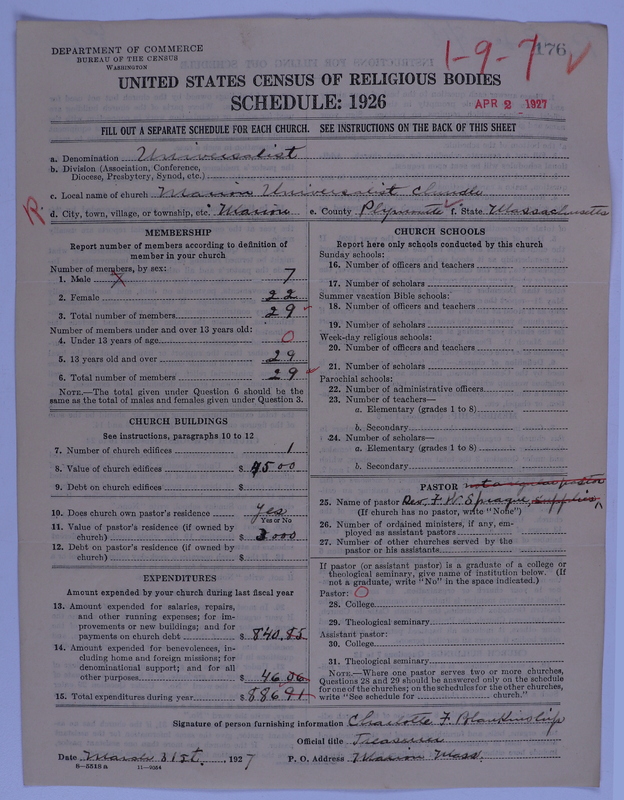 DEPARTMENT OF COMMERCE
BUREAU OF THE CENSUS
WASHINGTON
1-9-7 176
UNITED STATES CENSUS OF RELIGIOUS BODIES
SCHEDULE: 1926
APR 2 1927
FILL OUT A SEPARATE SCHEDULE FOR EACH CHURCH. SEE INSTRUCTIONS ON THE BACK OF THIS SHEET
a. Denomination Universalist
b. Division (Association, Conference,
Diocese, Presbytery, Synod, etc.)
c. Local name of church Marion Universalist Church
R. d. City, town, village, or township, etc. Marion e. County Plymouth f. State Massachusetts
MEMBERSHIP
Report number of members according to definition of
member in your church
Number of members, by sex:
1. Male 7
2. Female 22
3. Total number of members 29
Number of members under and over 13 years old:
4. Under 13 years of age 0
5. 13 years old and over 29
6. Total number of members 29
NOTE.—The total given under Question 6 should be the
same as the total of males and females given under Question 3.
CHURCH BUILDINGS
See instructions, paragraphs 10 to 12
7. Number of church edifices 1
8. Value of church edifices $4500
9. Debt on church edifices $
10. Does church own pastor's residence? yes
Yes or No
11. Value of pastor's residence (if owned by
church) $3000
12. Debt on pastor's residence (if owned by
church) $
EXPENDITURES
Amount expended by your church during last fiscal year
13. Amount expended for salaries, repairs,
and other running expenses; for im-
provements or new buildings; and for
payments on church debt $840.85
14. Amount expended for benevolences, in-
cluding home and foreign missions; for
denominational support; and for all
other purposes $46.06
15. Total expenditures during year $886.91
CHURCH SCHOOLS
Report here only schools conducted by this church
Sunday schools:
16. Number of officers and teachers
17. Number of scholars
Summer vacation Bible schools:
18. Number of officers and teachers
19. Number of scholars
Week-day religious schools:
20. Number of officers and teachers
21. Number of scholars
Parochial schools:
22. Number of administrative officers
23. Number of teachers—
a. Elementary (grades 1 to 8)
b. Secondary
24. Number of scholars—
a. Elementary (grades 1 to 8)
b. Secondary
PASTOR not a regular pastor
25. Name of pastor Rev. F. W. Sprague, supplies
(If church has no pastor, write "None")
26. Number of ordained ministers, if any, em-
ployed as assistant pastors
27. Number of other churches served by the
pastor or his assistants
If pastor (or assistant pastor) is a graduate of a college or
theological seminary, give name of institution below. (If
not a graduate, write "No" in the space indicated.)
Pastor: O
28. College
29. Theological seminary
Assistant pastor:
30. College
31. Theological seminary
NOTE.—Where one pastor serves two or more churches,
Questions 28 and 29 should be answered only on the schedule
for one of the churches; on the schedules for the other churches,
write "See schedule for church."
Signature of person furnishing information Charlotte F. Blankinship
Official title Treasurer
Date March 31st., 1927 P. O. Address Marion Mass.
8—5515 a 11—9054